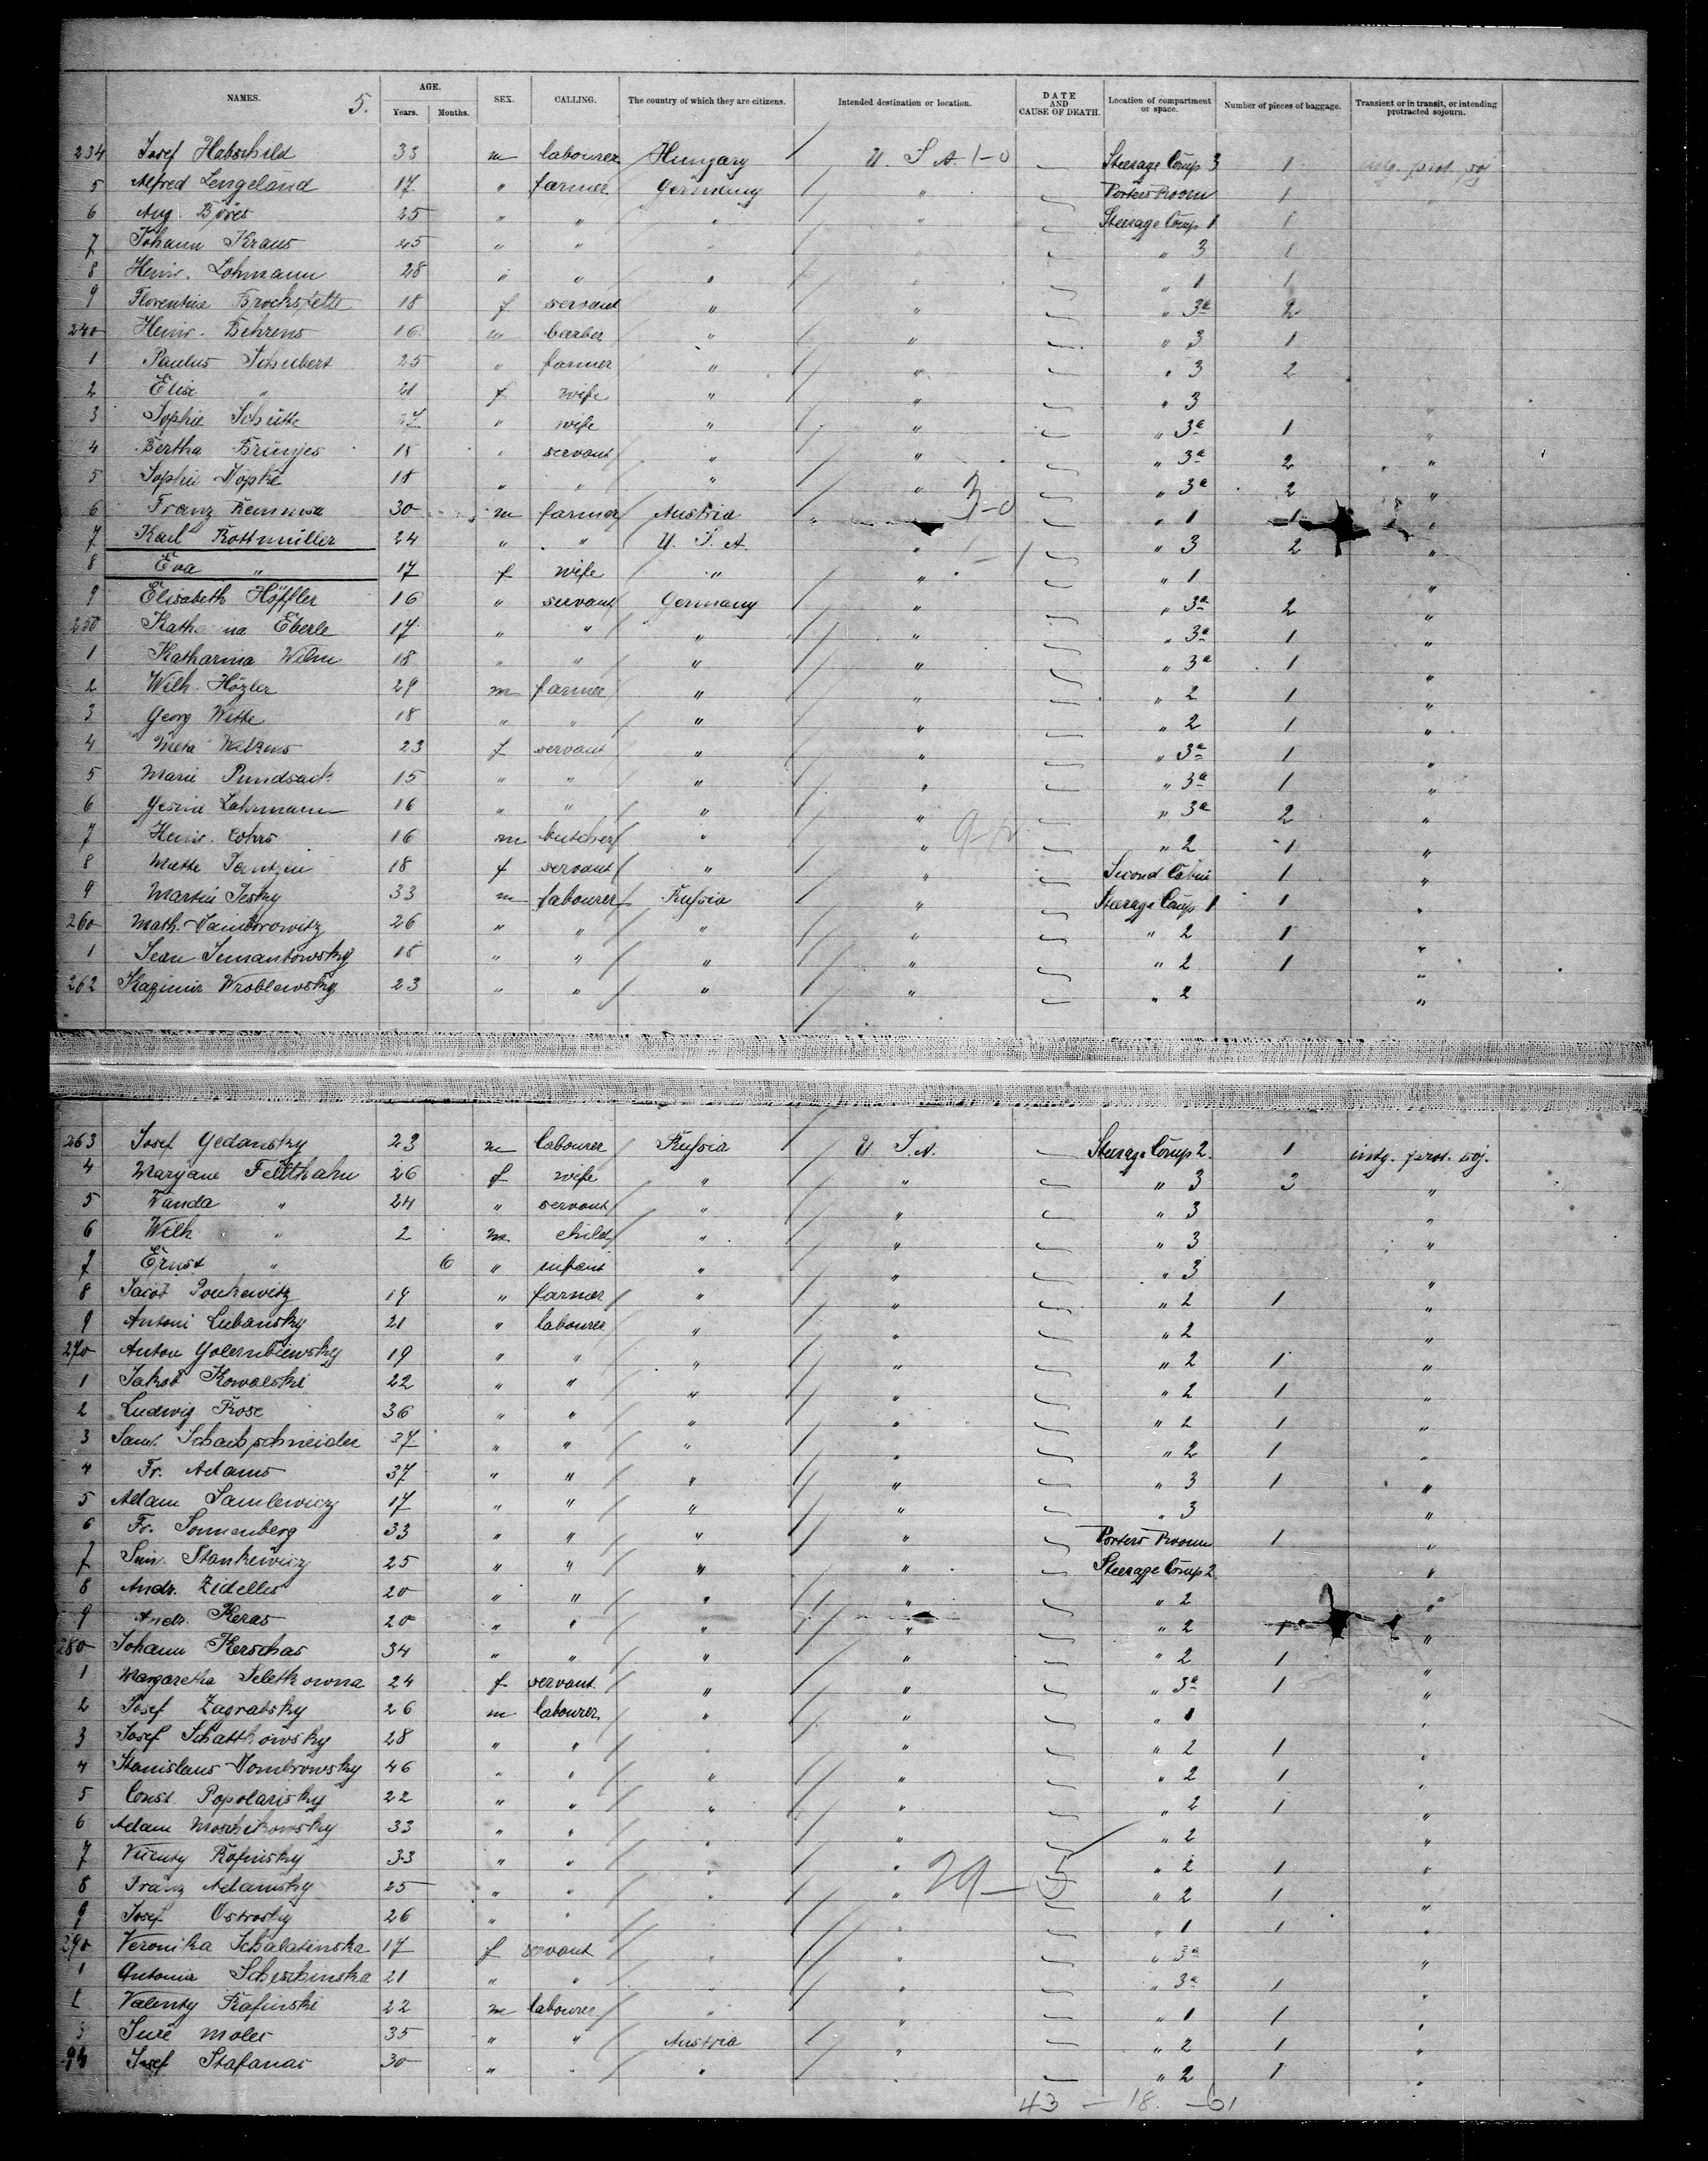 NAMES. 5. AGE. Years. Months. SEX. CALLING. The country of which they are citizens. Intended destination or location. DATE AND CAUSE OF DEATH. Location of compartment or space. Number of pieces of baggage. Transient or in transit, or intending protracted sojourn.
234 Josef Habschild 33 m labourer Hungary U. S. A. 1-0 Steerage Comp 3 1 intg. prot. soj
5 Alfred Lengeland 17 " farmer Germany " Porters Room 1
6 Aug. 25 " " " " Steerage Comp 1 1
7 Johann Kraus 45 " " " " " 3 1
8 Heinr. Lohmann 28 " " " " " 1 1
9 Florentine Brockstette 18 f servant " " " 3a 2
240 Heinr. Behrens 16 m barber " " " 3 1
1 Paulus Schubert 25 " farmer " " " 3 2
2 Elise " 21 f wife " " " 3 "
3 Sophie Schütte 27 " wife " " " 3a 1 "
4 Bertha Brünjes 18 " servant " " " 3a 2 "
5 Sophie Köpke 18 " " " " " 3a 2 "
6 Franz 30 m farmer Austria " 3-0 " 1 1 "
7 Karl Rottmüller 24 " " U. S. A. " " 3 2 "
8 Eva " 17 f wife " " - 1 " 1 "
9 Elisabeth Höffler 16 " servant Germany " " 3a 2 "
250 Katha na Eberle 17 " " " " " 3a 1 "
1 Katharina Wilm 18 " " " " " 3a 1 "
2 Wilh. Hözler 29 m farmer " " " 2 1 "
3 Georg Witte 18 " " " " " 2 1 "
4 Meta Wilkens 23 f servant " " " 3a 1 "
5 Marie Pundsack 15 " " " " " 3a 1 "
6 Gesine Lahrmann 16 " " " " " 3a 2 "
7 Heinr. Cohrs 16 m butcher " " " 2 1 "
8 Jantzen 18 f servant " " Second Cabin 1 "
9 Martin Jesky 33 m labourer Russia " Steerage Comp 1 1 "
260 Math. 26 " " " " " 2 1 "
1 Jean 18 " " " " " 2 1 "
262 Kazimir Wroblewsky 23 " " " " " 2 "
263 Josef Gedansky 23 m labourer Russia U S. A. Steerage Comp 2 1 intg. prot. soj.
4 Maryane Feldthahn 26 f wife " " " 3 3 "
5 Wanda " 24 " servant " " " 3 "
6 Wilh " 2 m child " " " 3 "
7 Ernst " 6 " infant " " " 3 "
8 19 " farmer " " " 2 1 "
9 Antoni Lubansky 21 " labourer " " " 2 "
270 Anton 19 " " " " " 2 1 "
1 Jakob Kowalski 22 " " " " " 2 1 "
2 Ludwig Rose 36 " " " " " 2 1 "
3 Saml. Schaibschneider 37 " " " " " 2 1 "
4 Fr. Adams 37 " " " " " 3 1 "
5 Adam Samlewicz 17 " " " " " 3 "
6 Fr. Sonnenberg 33 " " " " Porters Room 1 "
7 Stankewicz 25 " " " " Steerage Comp 2 "
8 Andr. Zidelles 20 " " " " " 2 "
9 Andr. Keras 20 " " " " " 2 1 "
280 Johann Kerschas 34 " " " " " 2 1 "
1 Margaretha Seletkowna 24 f servant " " " 3a 1 "
2 Josef Zagratsky 26 m labourer " " " 1 "
3 Josef Schattkowsky 28 " " " " " 2 1 "
4 Stanislaus Dombrowsky 46 " " " " " 2 1 "
5 Const. Popolarisky 22 " " " " " 2 1 "
6 Adam Moschikowsky 33 " " " " " 2 "
7 33 " " " " 29-5 " 2 1 "
8 Franz Adamsky 25 " " " " " 2 1 "
9 Josef Ostrosky 26 " " " " 1 1 "
290 Veronika Schalatinska 17 f servant " " " 3a "
1 Antonia Scheschinska 21 " " " " 3a 1 "
2 Valenty 22 m labourer " " " 1 1 "
3 Jure Moler 35 " " Austria " " 2 1 "
94 Josef Stafanas 30 " " " " " 2 1 "
43 - 18 - 61